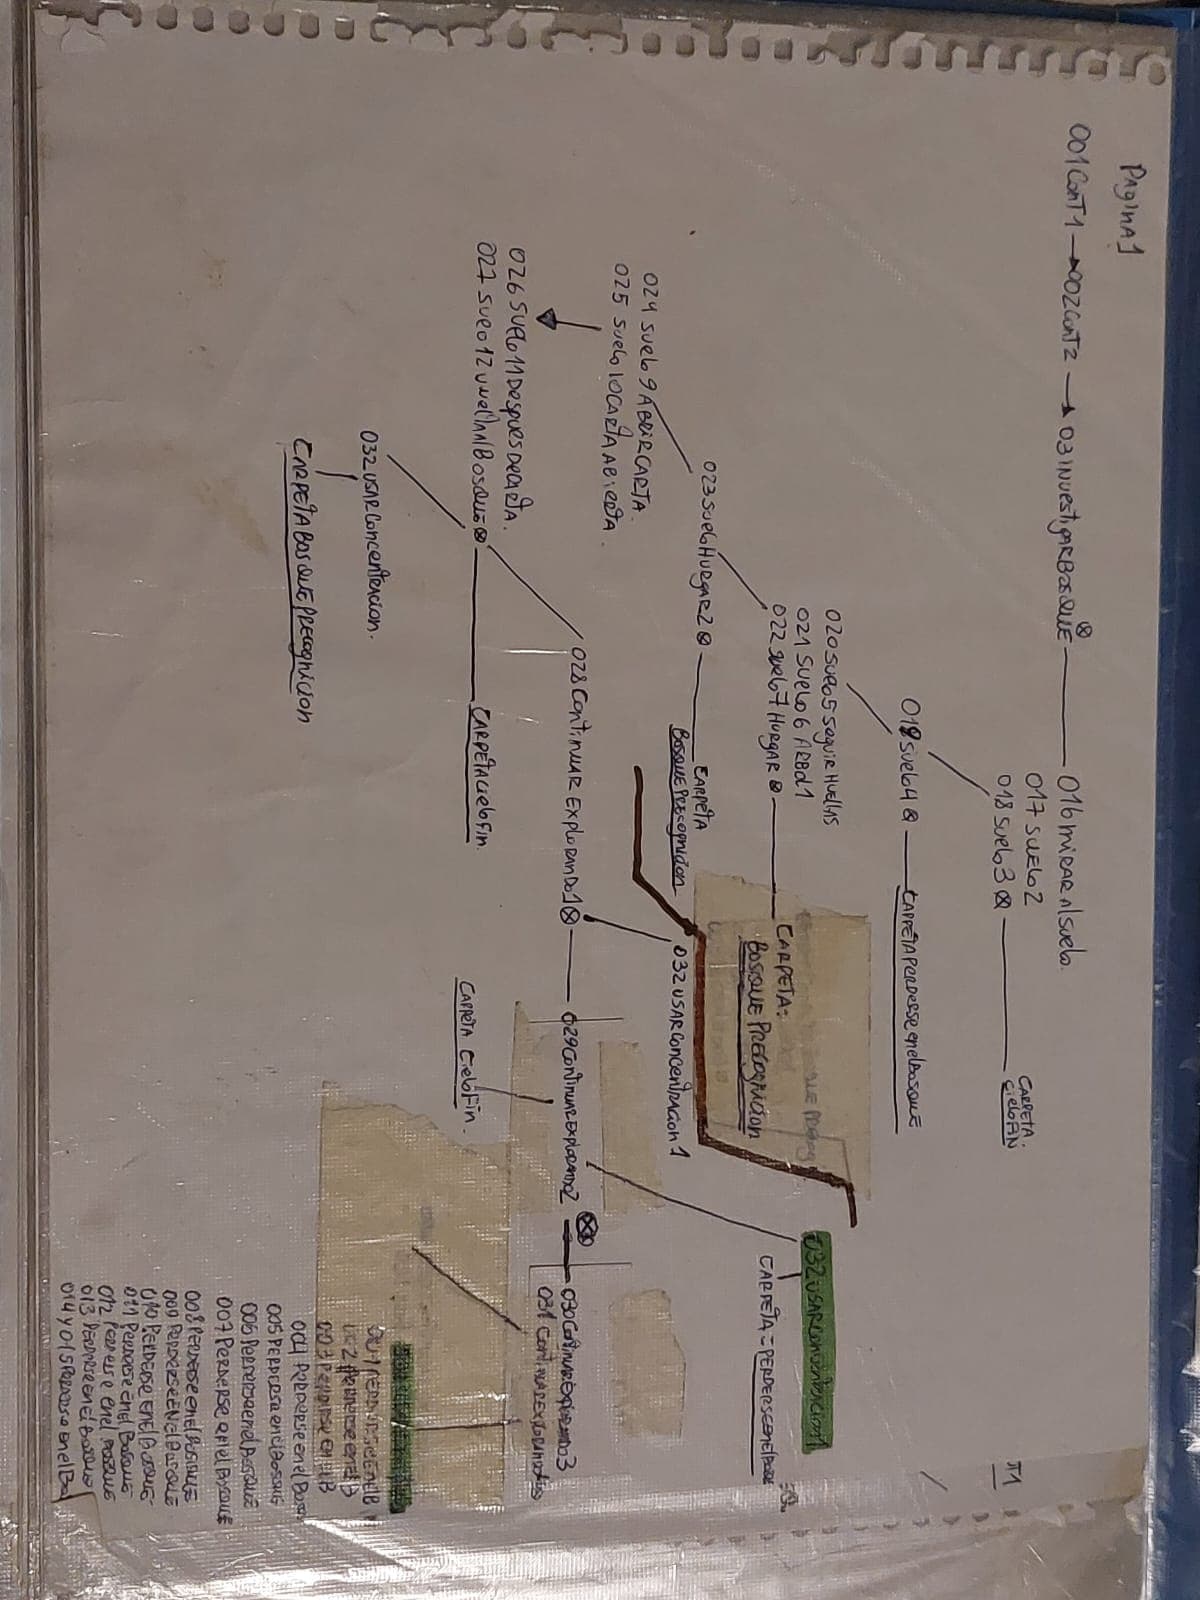 Pagina 1
001 ConT1 → 002 ConT2 → 03 Investigar Bosque ⊗ — 016 mirar al suelo.
017 Suelo 2
018 Suelo 3 ⊗ — Carpeta. Cielo Fin
019 Suelo 4 ⊗ — Carpeta Perderse en el Bosque
020 Suelo 5 Seguir Huellas
021 Suelo 6 Arbol 1
022 Suelo 7 Hurgar ⊗ — Carpeta: Bosque Precognicion
032 USAR
Carpeta = Perderse en el
023 Suelo Hurgar 2 ⊗ — Carpeta Bosque Precognicion
032 USAR Concentracion 1
024 Suelo 9 Abrir Carta.
025 Suelo 10 Carta Abierta.
028 Continuar Explorando 1 ⊗ — 029 Continuar Explorando 2 ⊗ — 030 Continuar Explorando 3
031 Continuar
026 Suelo 11 Despues De Carta.
027 Sueo 12 Bosque ⊗ — Carpeta Cielo Fin.
Carpeta Cielo Fin.
032 USAR Concentracion.
Carpeta Bosque Precognicion
001 en el B
002 Perderse en el B
003 Perderse en el B
004 Perderse en el
005 Perderse en el Bosque
006 Perderse en el Bosque
007 Perderse en el Bosque
008 Perderse en el Bosque
009 Perderse en el Bosque
010 Perderse en el Bosque
011 Perderse en el Bosque
012 Perderse en el Bosque
013 Perderse en el Bosque
014 y 015 Perderse en el Bo